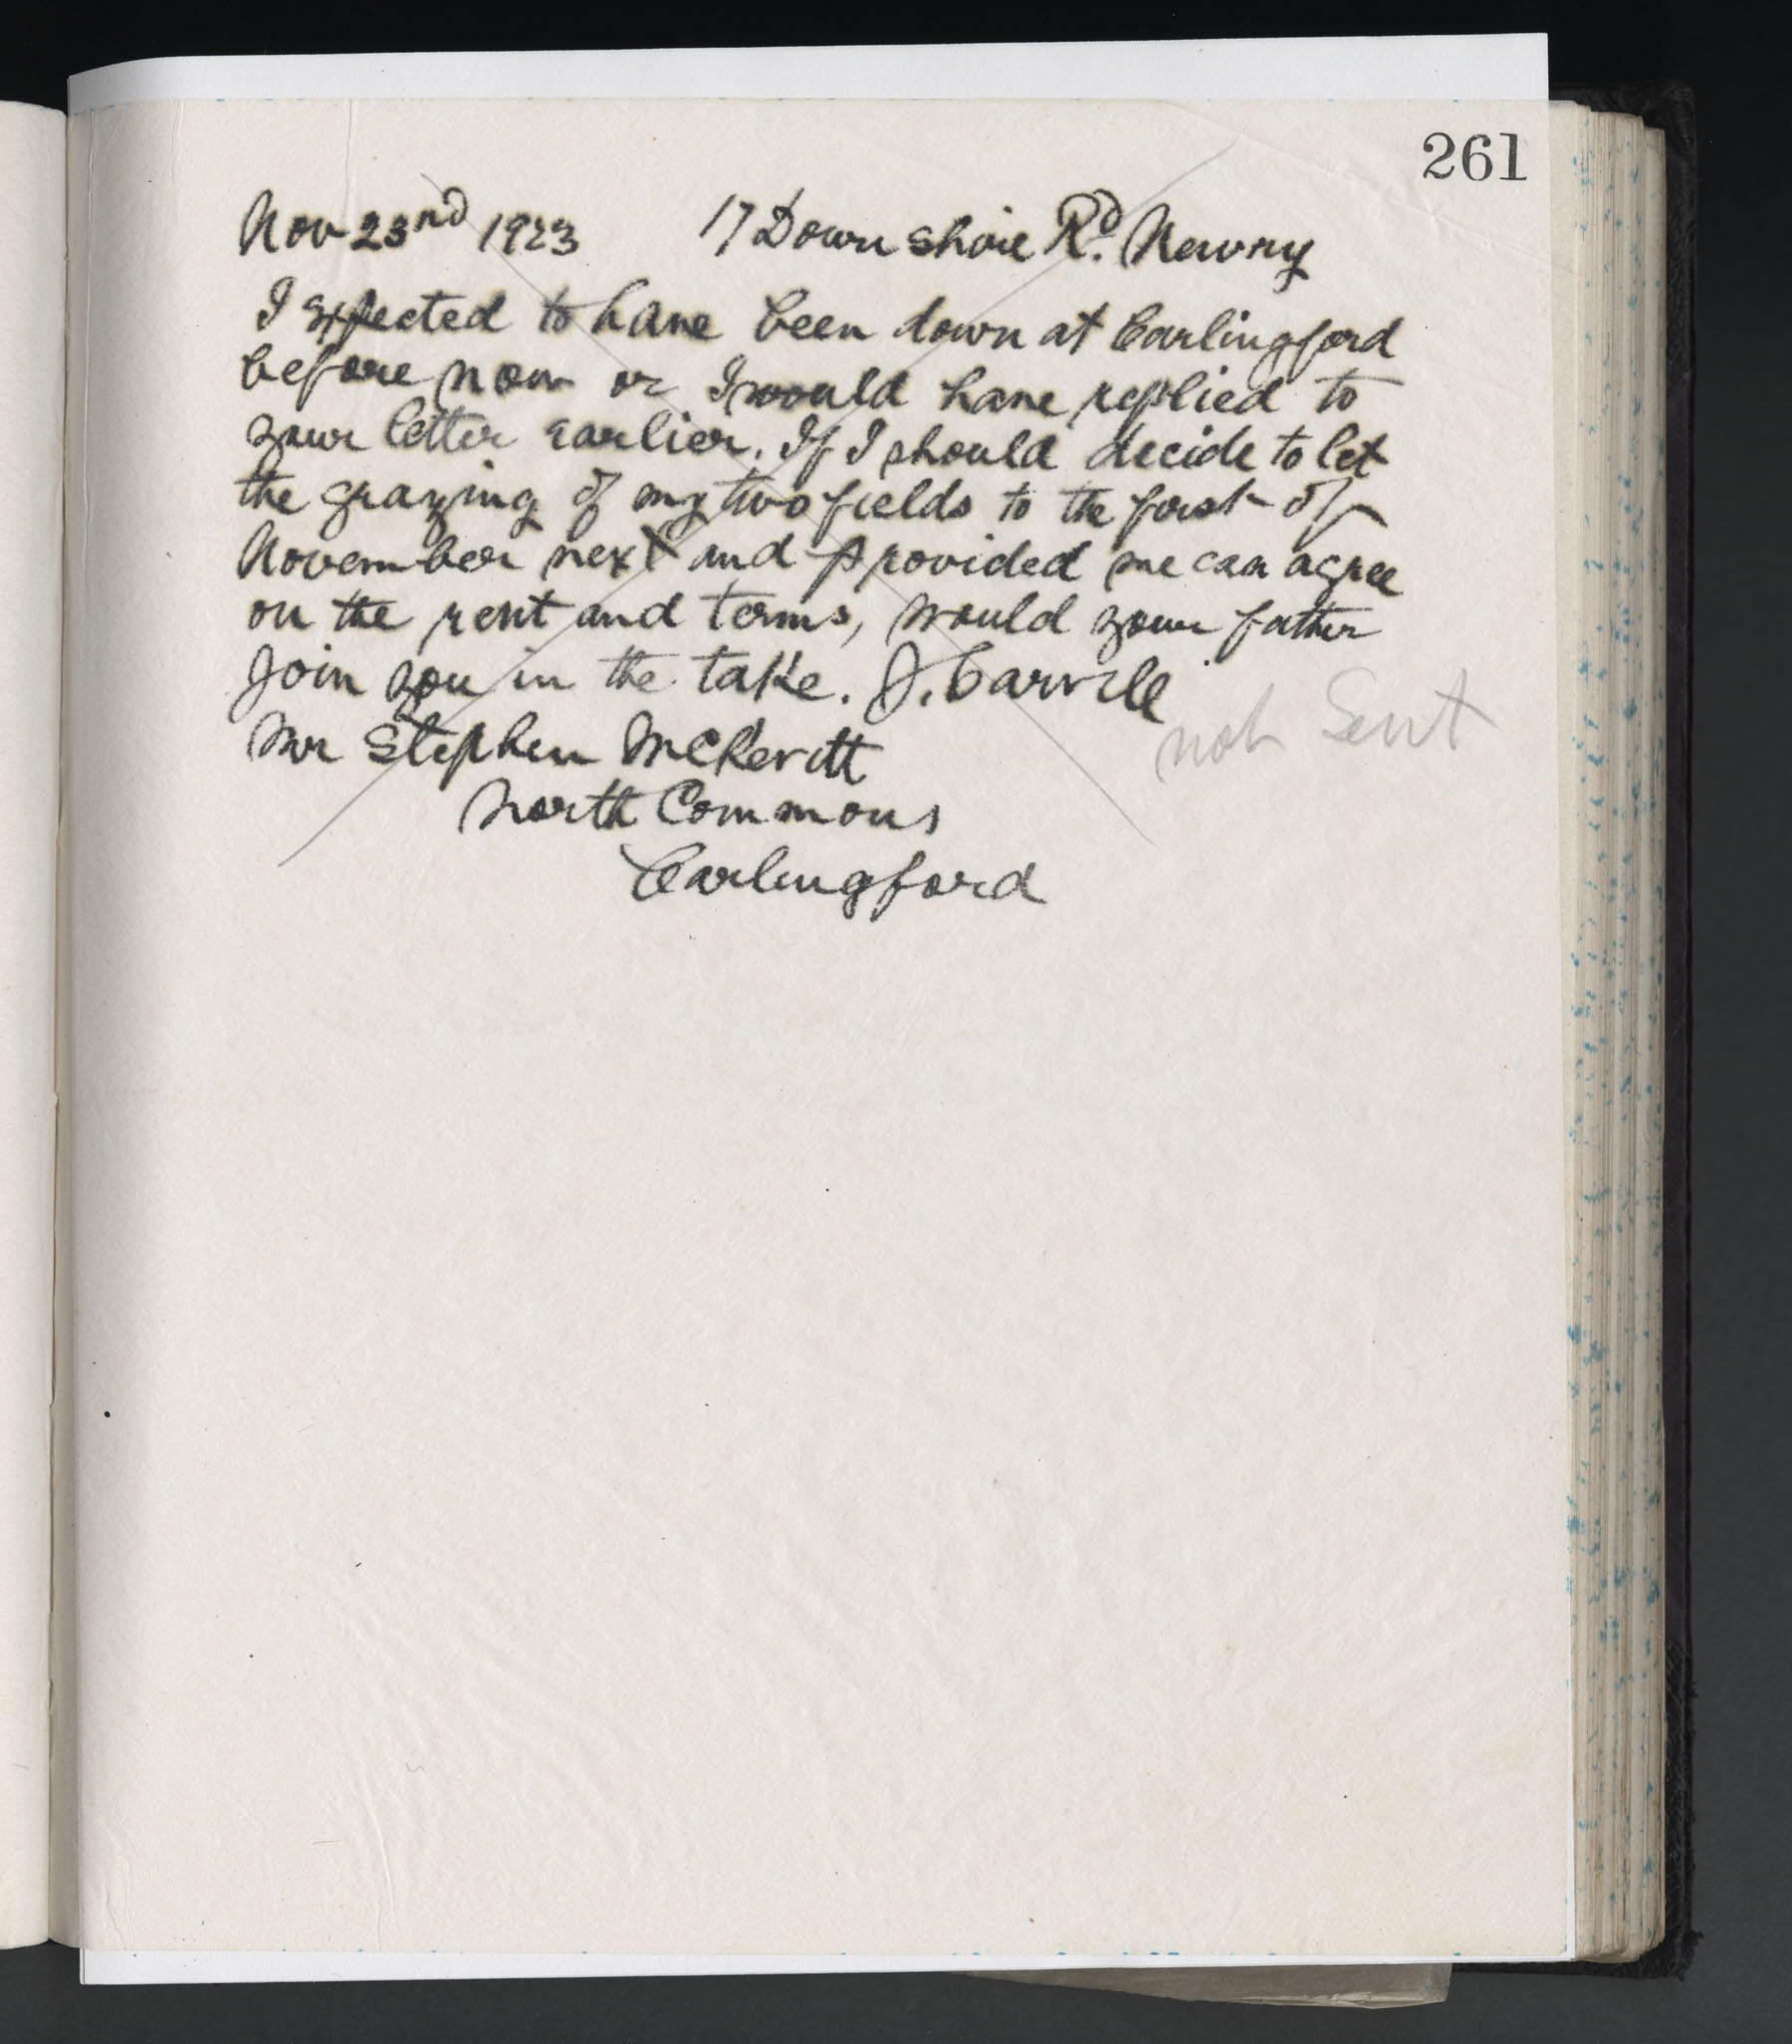 261
Nov 23nd 1923 17 Downshire Rd. Newry
I expected to have been down at Carlingford
before now or I would have replied to
your letter earlier. If I should decide to let
the grazing of my two fields to the first of
November next and provided we can agree
on the rent and terms, would your father
join you in the take. J. Carvill
Mr Stephen McKevitt
North Commons
Carlingford
not Sent